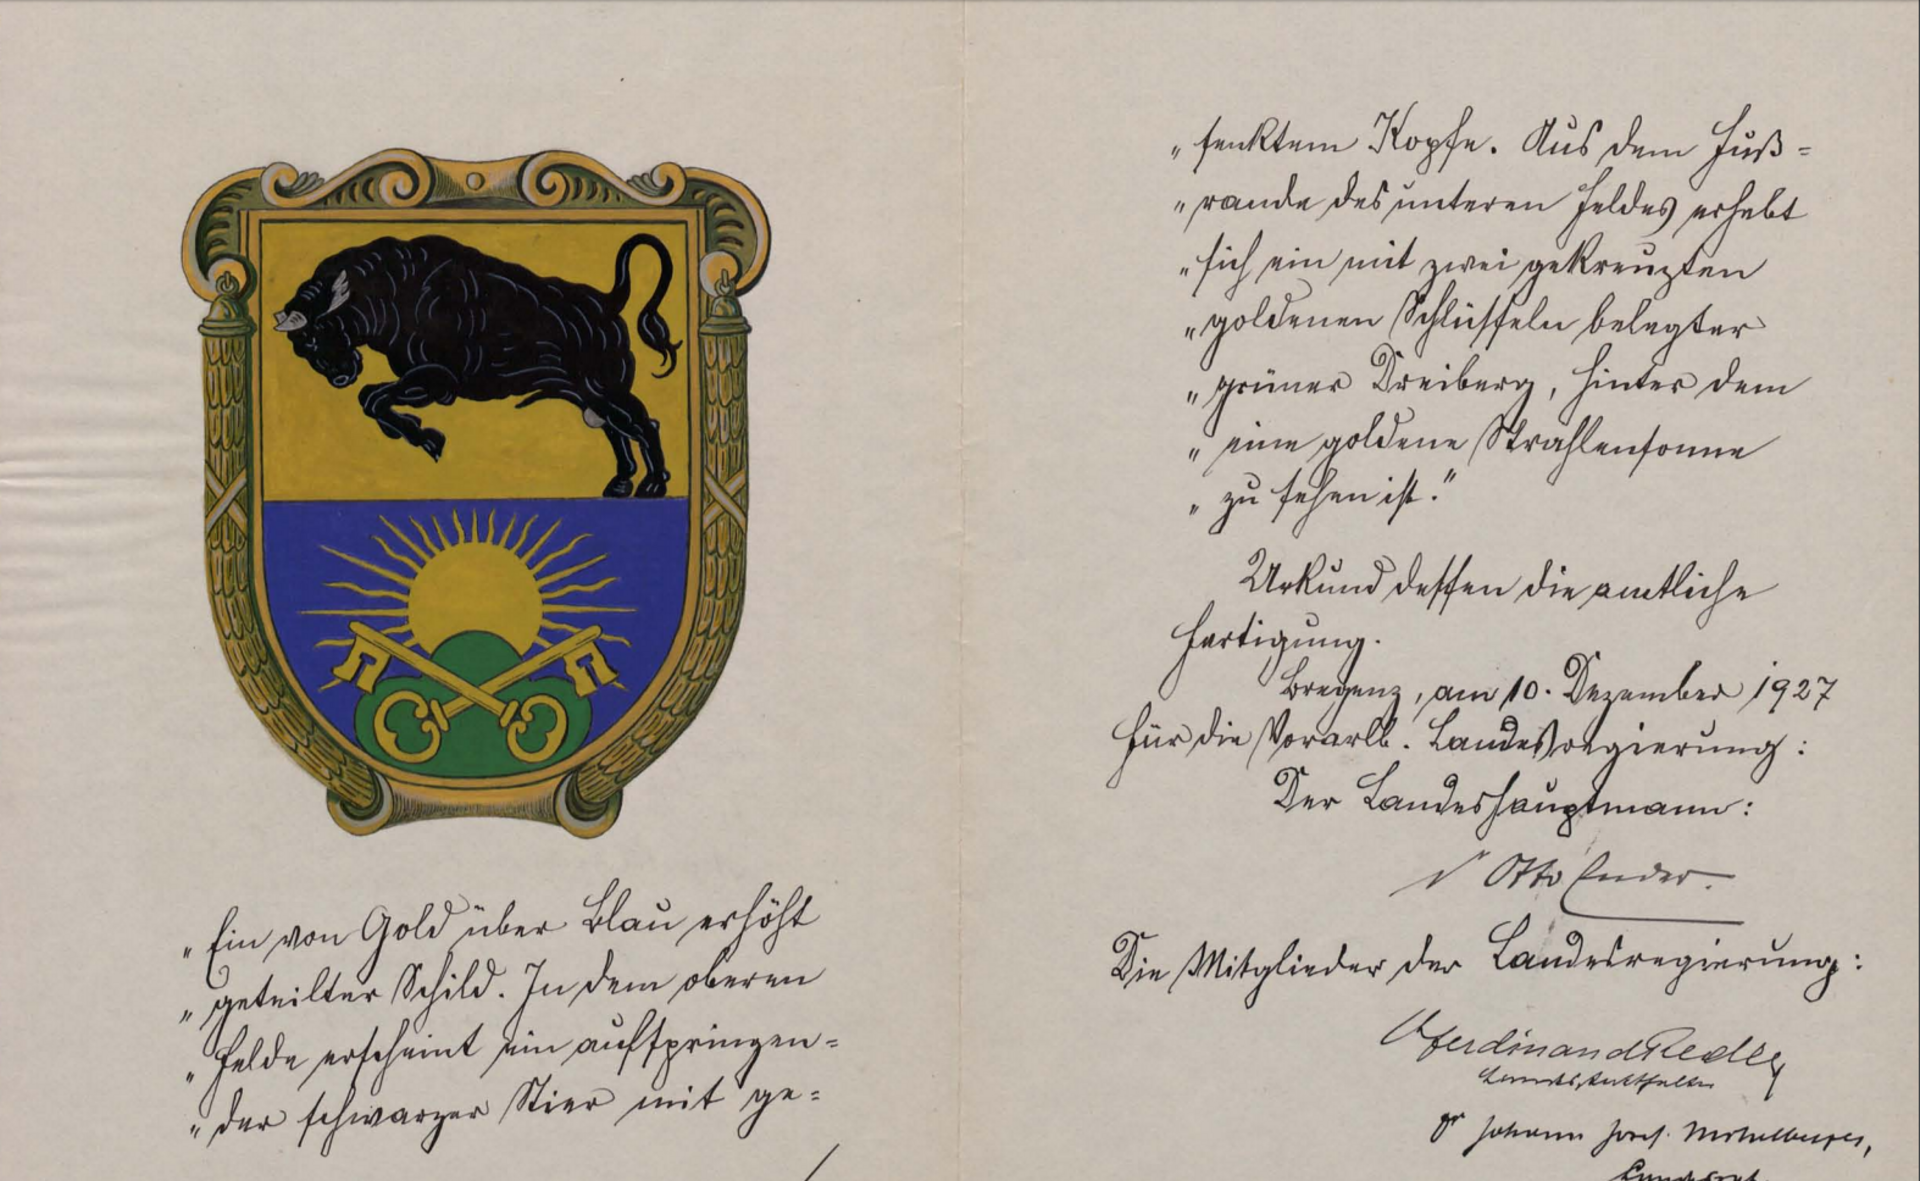 „Ein von Gold über Blau erhöht
„geteilter Schild. In dem oberen
„Felde erscheint ein aufspringen=
„der schwarzer Stier mit ge=
„senktem Kopfe. Aus dem Fuß=
„rande des unteren Feldes erhebt
„sich ein mit zwei gekreuzten
„goldenen Schlüsseln belegter
„grüner Dreiberg, hinter dem
„eine goldene Strahlensonne
„zu sehen ist.“
Urkund dessen die amtliche
Fertigung.
Bregenz, am 10. Dezember 1927
Für die Vorarlb. Landesregierung:
Der Landeshauptmann:
Dr Otto Ender.
Die Mitglieder der Landesregierung:
Ferdinand Redler
Landesstatthalter
Dr Johann Josef Mittelberger,
Landesrat